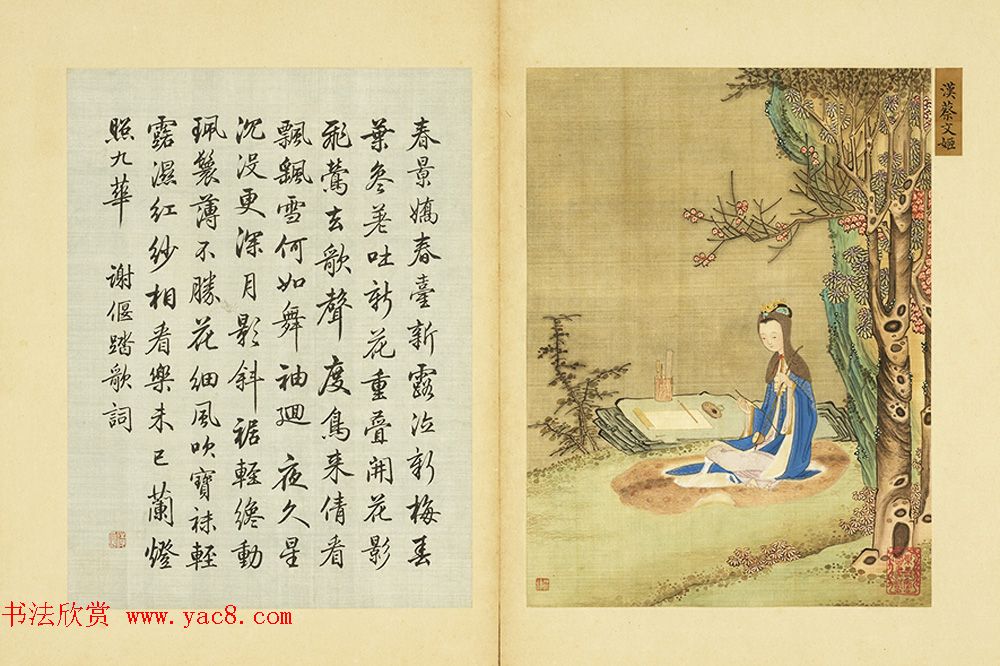 漢蔡文姬
春景嬌春臺新露泣新梅春
葉参差吐新花重疊開花影
飛鶯去歌聲度鳥來倩看
飄颻雪何如舞袖迴 夜久星
沉没更深月影斜裾輕纔動
珮鬟薄不勝花細風吹寶袜輕
露濕紅紗相看樂未已蘭燈
照九華 謝偃踏歌詞
书法欣赏 www.yac8.com